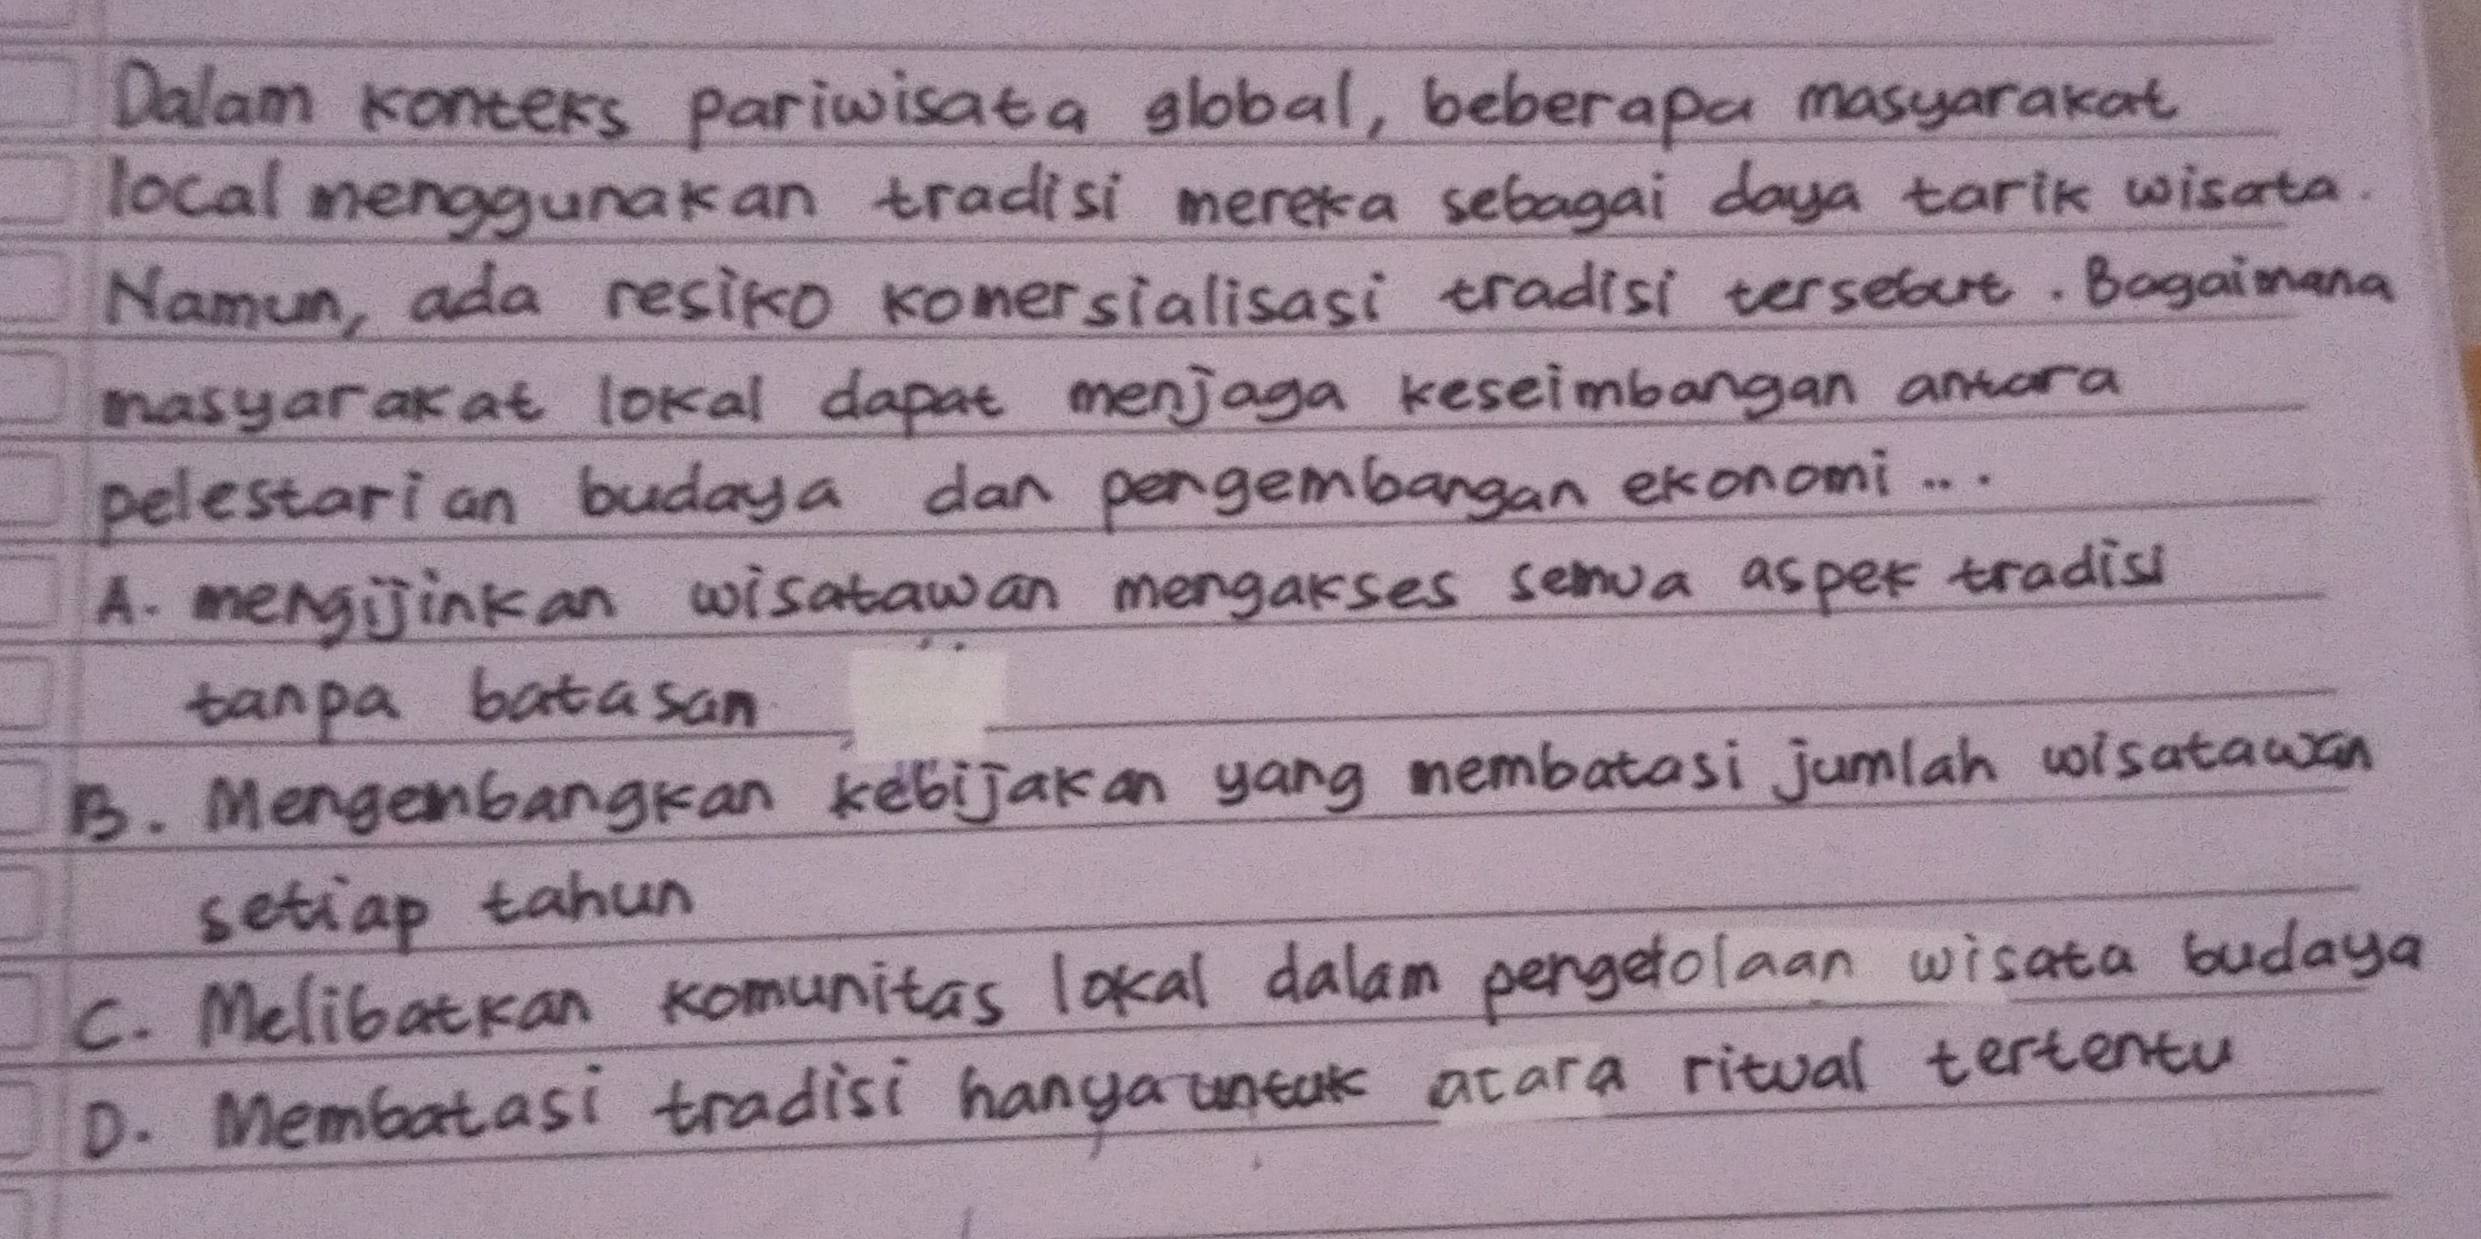 Dalam konteks pariwisata global, beberapa masyarakat
local menggunakan tradisi mereka sebagai daya tarik wisata.
Namun, ada resiko komersialisasi tradisi tersebut. Bagaimana
masyarakat lokal dapat menjaga keseimbangan antara
pelestarian budaya dan pengembangan ekonomi ...
A. mengijinkan wisatawan mengakses semua aspek tradisi
tanpa batasan
B. Mengembangkan kebijakan yang membatasi jumlah wisatawan
setiap tahun
C. Melibatkan komunitas lokal dalam pengelolaan wisata budaya
D. Membatasi tradisi hanya untuk acara ritual tertentu